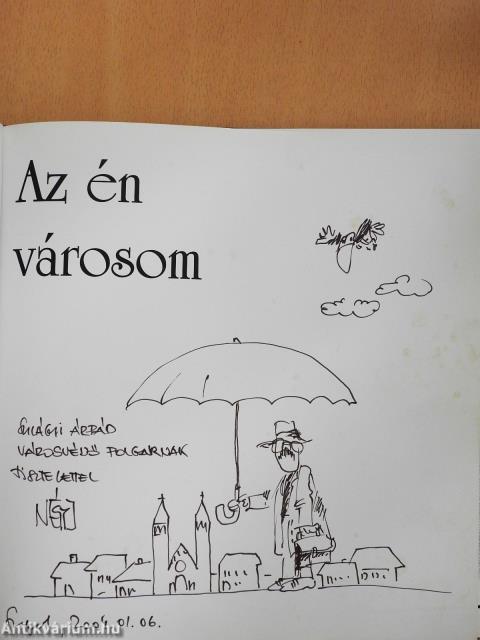 Az én
városom
SZILÁGYI ÁRPÁD
VÁROSVÉDŐ POLGÁRNAK
TISZTELETTEL
2004.01.06.
Antikvárium.hu